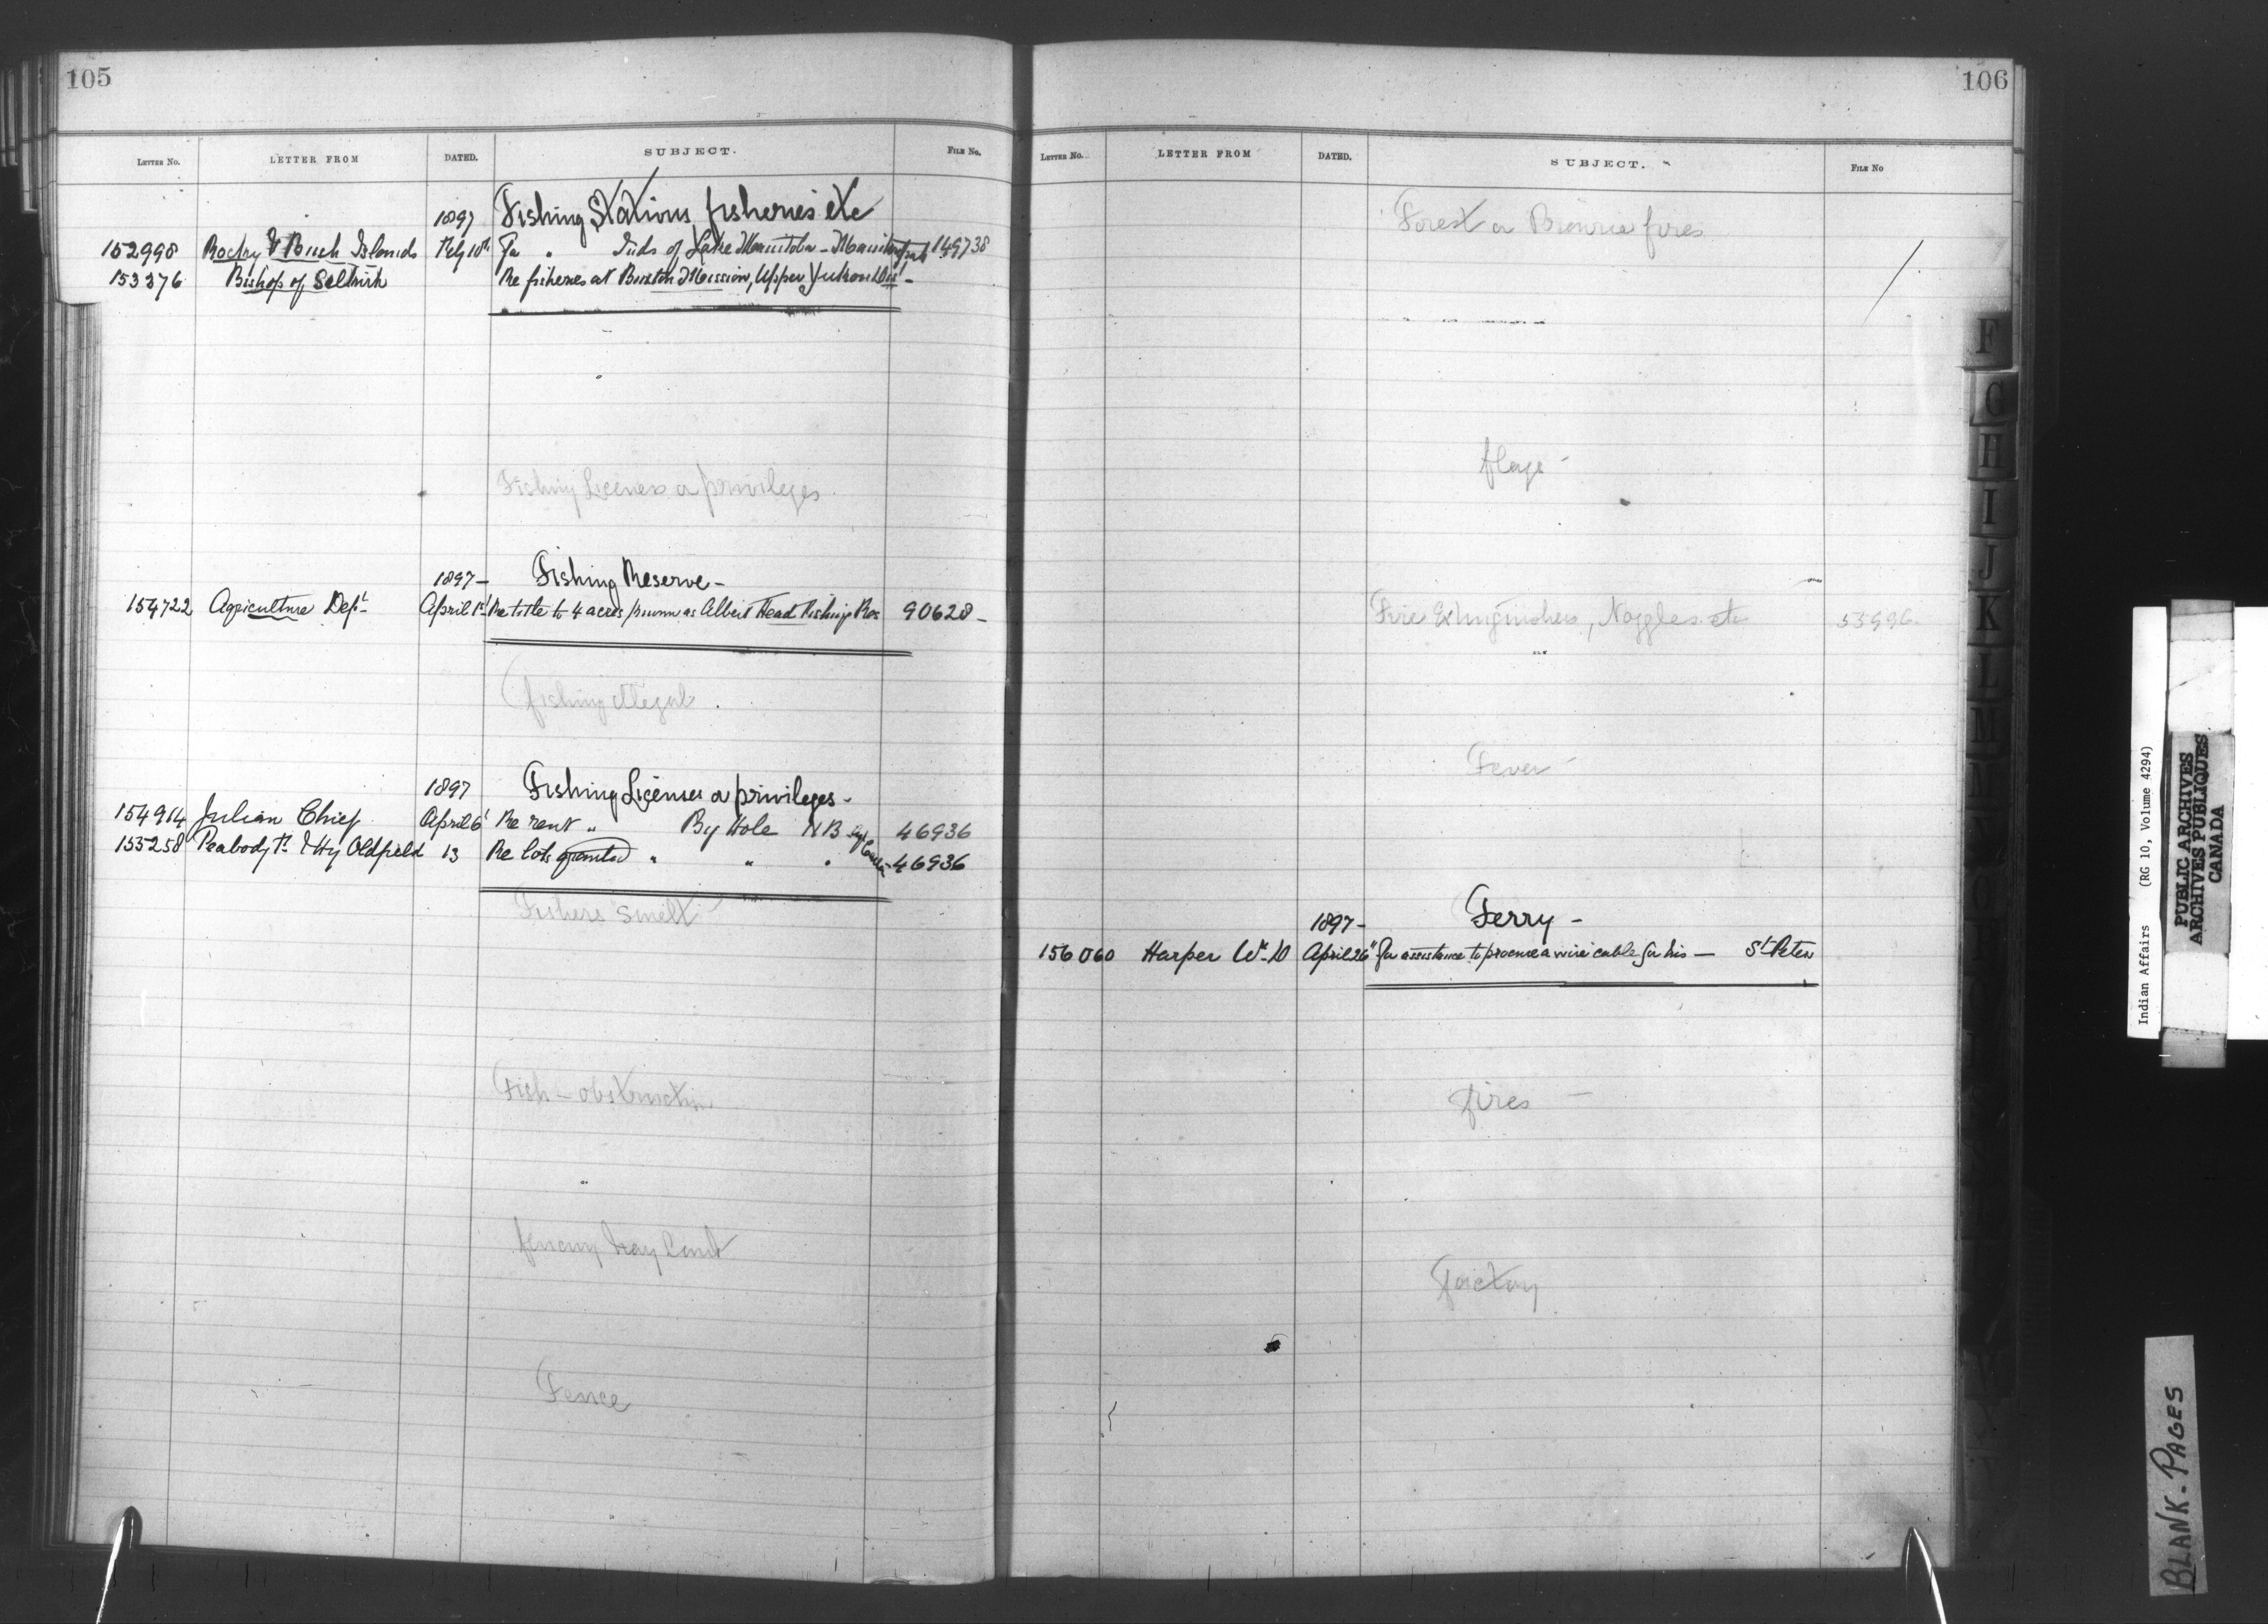 105
LETTER NO. LETTER FROM DATED. SUBJECT. FILE No.
1897 Fishing Stations fisheries etc
152998 Rocky & Birch Islands Feby 10th For " Inds of Lake Manitoba - 149738
153376 Bishop of Selkirk Re fisheries at Buxton Mission, Upper Yukon Dist -
Fishing Licenses or privileges
1897 - Fishing Reserve -
154722 Agriculture Dept April 1st Re title to 4 acres known as Albert Head Fishing Res 90628 -
fishing illegal
1897 Fishing Licenses or privileges -
154914 Julian Chief April 6 Re rent " By Hole NB 46936
155258 Peabody & Hy Oldfield 13 Re lots granted " " " 46936
Fishers Smelt
Fish - obstruction
Hay Land
Fence
106
LETTER NO. LETTER FROM DATED. SUBJECT. FILE No
Forest or Prairie fires
flags -
Fire Extinguishers, Nozzles etc 53996
Fever -
1897 - Ferry -
156060 Harper Wm D April 26" For assistance to procure a wire cable for his — St Peters
fires -
factory
F
G
H
I
J
K
L
M
Indian Affairs (RG 10, Volume 4294)
PUBLIC ARCHIVES
ARCHIVES PUBLIQUES
CANADA
BLANK-PAGES